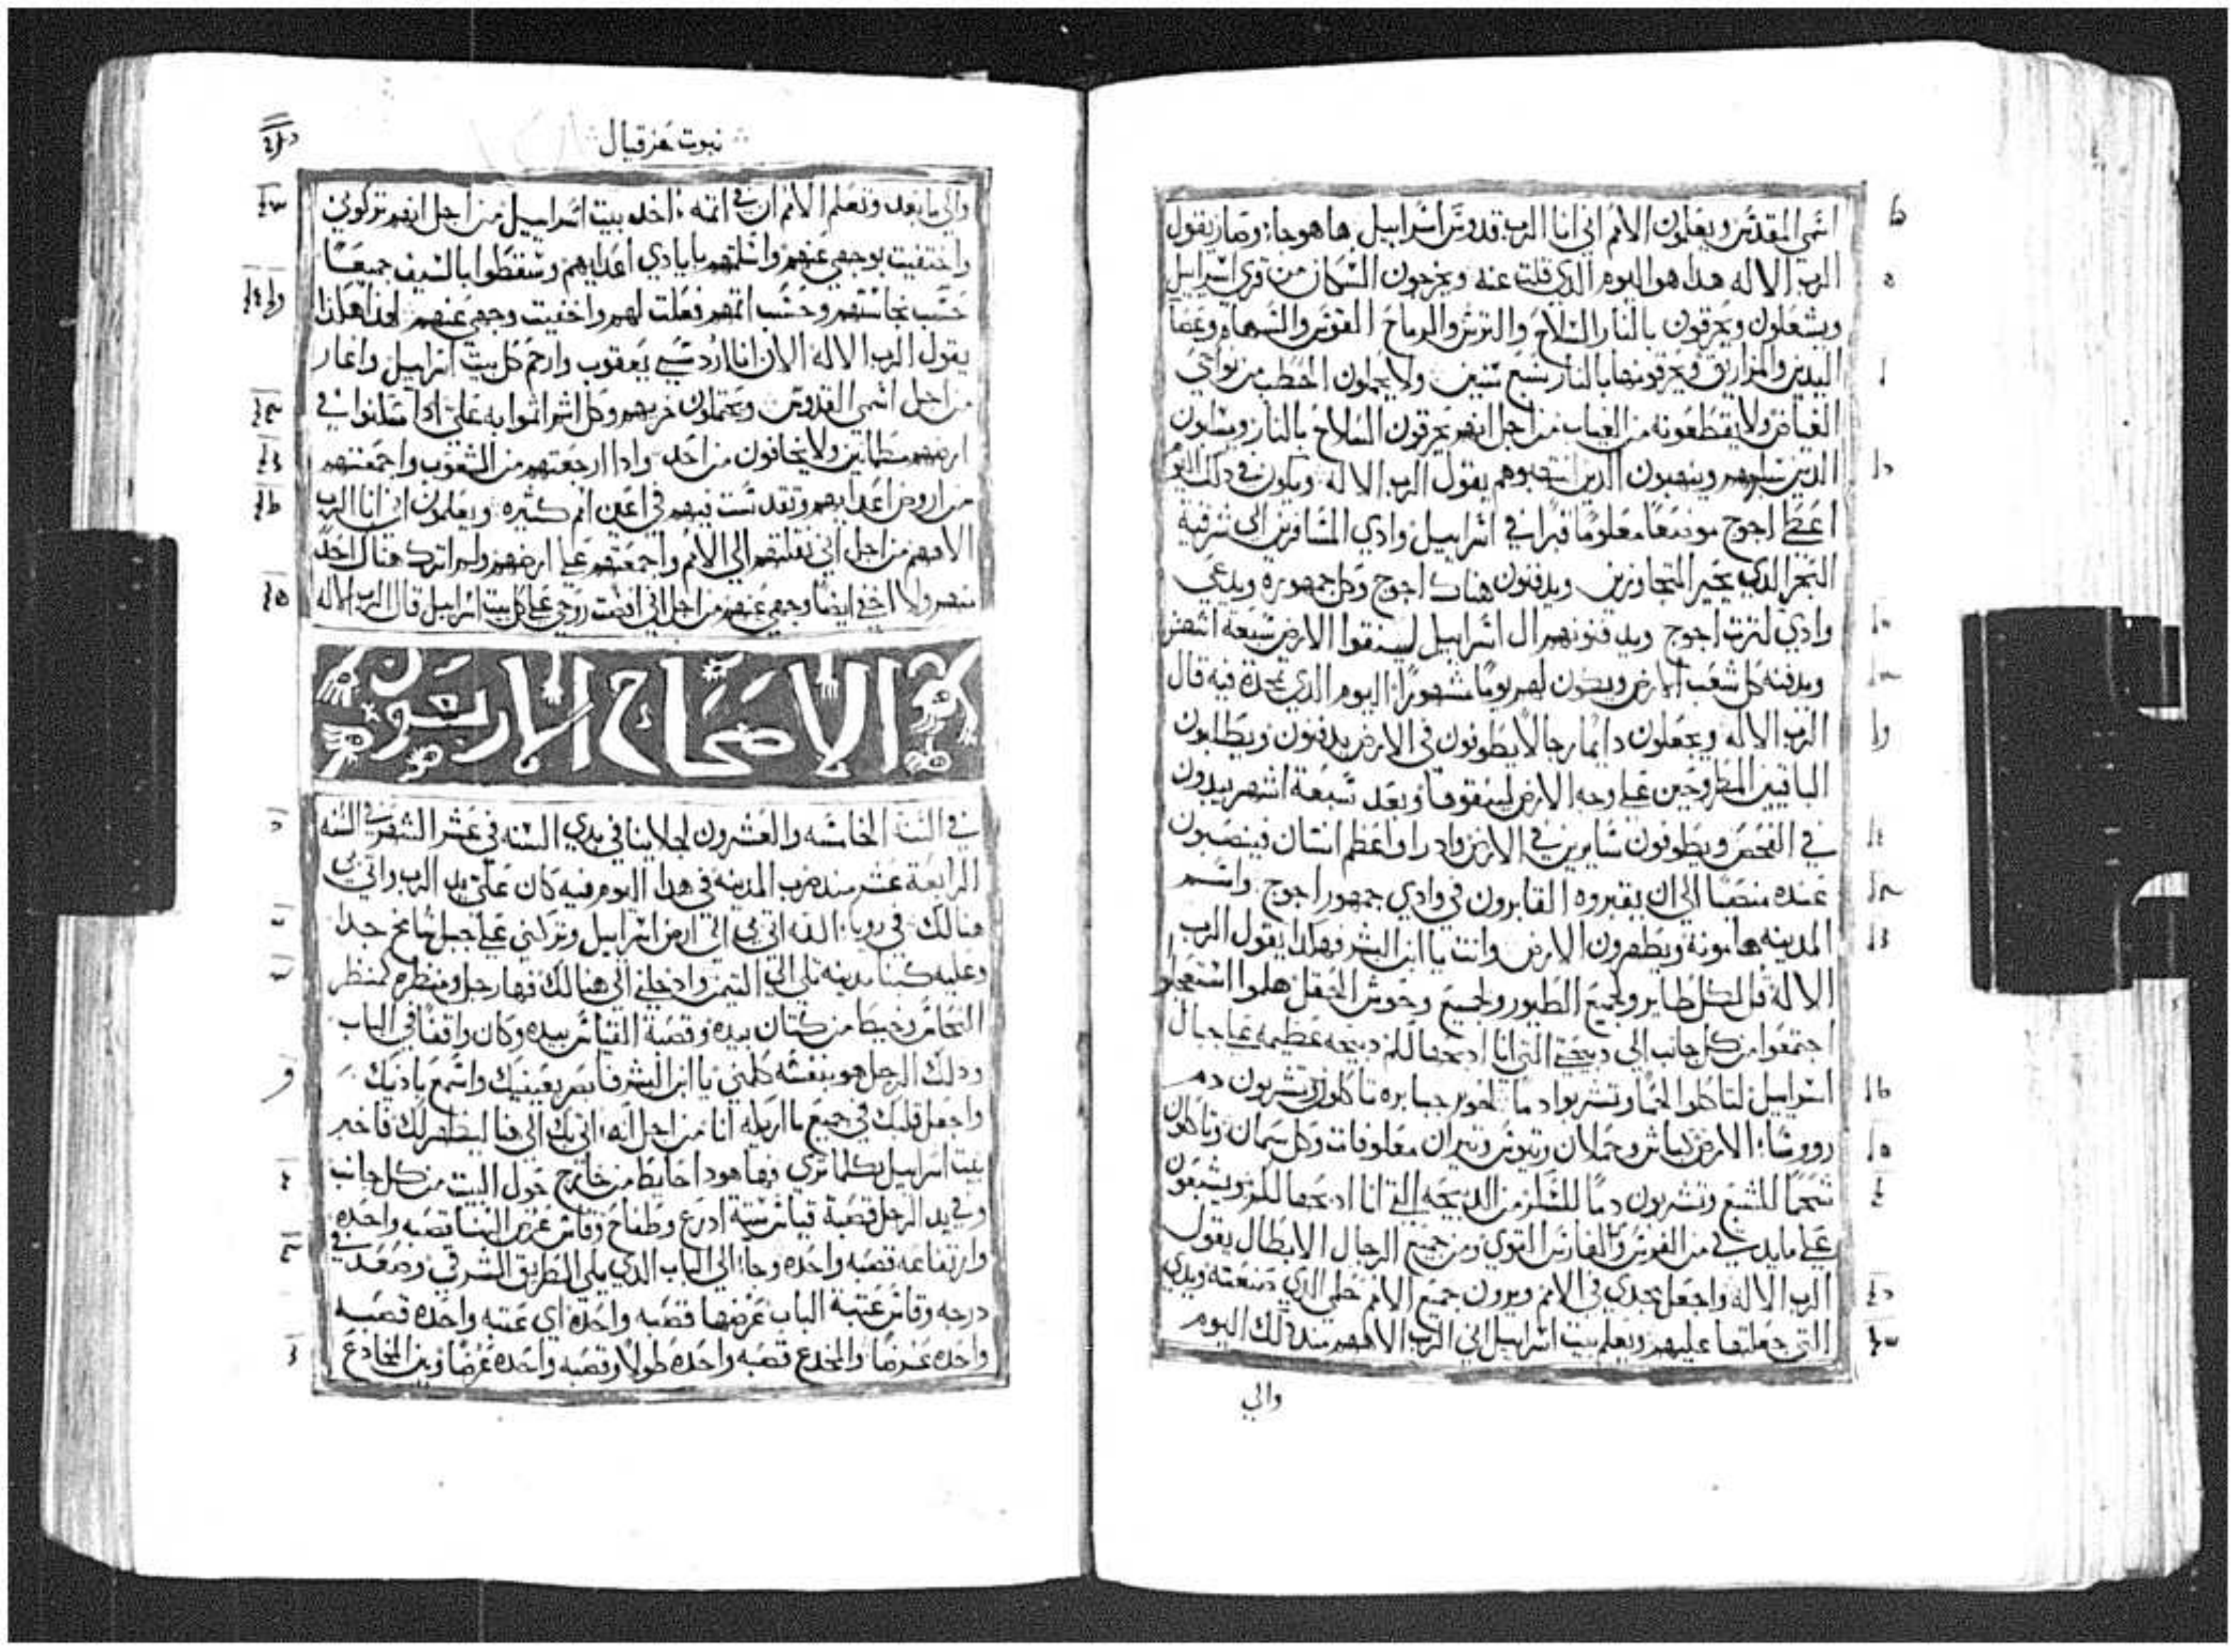 اسمي المقدس ويعلمون الامم اني انا الرب قدوس اسراييل ها هو جاء وصار يقول
الرب الاله هدا هو اليوم الدي قلت عنه ويخرجون السكان من قري اسراييل
ويشعلون ويحرقون بالنار السلاح والترس والرماح القوس والسهام وعصا
اليدين والمزاريق ويحرقونها بالنار سبع سنين ولا يحملون الحطب من نواحي
الغياض ولا يقطعونه من الغياب من اجل انهم يحرقون السلاح بالنار ويسلبون
الدين سلبوهم وينهبون الدين انتهبوهم يقول الرب الاله ويكون في دلك اليوم
اعطي اجوج موضعا معلوما قبرا في اسراييل وادي المسافرين الي شرقية
البحر الدي يحير المتجاوزين ويدفنون هناك اجوج وكل جمهوره ويدعي
وادي لترت اجوج ويدفنونهم ال اسراييل لينقوا الارض سبعة اشهر
ويدفنه كل شعب الارض ويكون لهم يوما مشهورا اليوم الدي تمجدت فيه قال
الرب الاله ويجعلون دايما رجالا يطوفون في الارض يدفنون ويطلبون
الباقيين المطروحين علي وجه الارض لينقوها وبعد سبعة اشهر يبدون
في الفحص ويطوفون سايرين في الارض وادا راو اعظم انسان فينصبون
عنده منصبا الي ان يقبروه القابرون في وادي جمهور اجوج واسم
المدينه هامونة ويطهرون الارض وانت يا ابن البشر فهكدا يقول الرب
الاله قل لكل طاير ولجميع الطيور ولجميع وحوش الحقل هلموا استعجلوا
اجتمعوا من كل جانب الي دبيحتي التي انا ادبحها لكم دبيحه عظيمه علي جبال
اسراييل لتاكلوا لحما وتشربوا دما لحوم جبابره تاكلون وتشربون دم
رووسا الارض كباش وحملان وتيوس وتيران معلوفات وكل سمان وتاكلون
شحما للشبع وتشربون دما للسكر من الدبيحه التي انا ادبحها لكم وتشبعون
علي مايدتي من الفرس والفارس القوي ومن جميع الرجال الابطال يقول
الرب الاله واجعل مجدي في الامم ويرون جميع الامم حكمي الدي صنعته ويدي
التي جعلتها عليهم ويعلم بيت اسراييل اني الرب الاههم مند دلك اليوم
والي
نبوت حزقيال
والي ما بعد وتعلم الامم ان في اتمه اخد بيت اسراييل من اجل انهم تركوني
واختفيت بوجهي عنهم واسلمتهم بايادي اعدايهم وسقطوا بالسيف جميعا
حسب نجاستهم وحسب اتمهم فعلت لهم واخفيت وجهي عنهم لهدا هكذا
يقول الرب الاله الان انا ارد سبي يعقوب وارحم كل بيت اسراييل واغار
من اجل اسمي القدوس ويحتملون خزيهم وكل اثم اتموا به علي ادا سكنوا في
ارضهم مطمانين ولا يخافون من احد وادا ارجعتهم من الشعوب واجمعتهم
من اروض اعدايهم وتقدست فيهم في اعين امم كثيره ويعلمون اني انا الرب
الاههم من اجل اني نقلتهم الي الامم واجمعتهم علي ارضهم ولم اترك هناك احدا
منهم ولا اخفي ايضا وجهي عنهم من اجل اني افضت روحي علي كل بيت اسراييل قال الرب الاله
الاصحاح الاربعون
في السنة الخامسه والعشرون لجلاينا في بدي السنه في عشر الشهر في السنه
الرابعة عشر مند ضرب المدينه في هدا اليوم فيه كان علي يد الرب واتي بي
هنالك في رويا الله اتي بي الي ارض اسراييل وتركني علي جبل شامخ جدا
وعليه كبنا مدينه تلي الي التيمن وادخلني الي هنالك فها رجل ومنظره كمنظر
النحاس وخيط من كتان بيده وقصبة القياس بيده وكان واقفا في الباب
ودلك الرجل هو بنفسه كلمني يا ابن البشر فابصر بعينيك واسمع بادنيك
واجعل قلبك في جميع ما اريك انا من اجل انه اتي بك الي هنا ليظهر لك فاخبر
بيت اسراييل بكلما تري فها هودا حايط من خارج حول البيت من كل جانب
وفي يد الرجل قصبة قياس ستة ادرع وطفاح وقاس عرض البنا قصبه واحده
وارتفاعه قصبه واحده وجاء الي الباب الدي يلي الطريق الشرقي وصعد في
درجه وقاس عتبة الباب عرضها قصبه واحده اي عتبه واحده قصبه
واحده عرضا والمخدع قصبه واحده طولا وقصبه واحده عرضا وبين المخادع